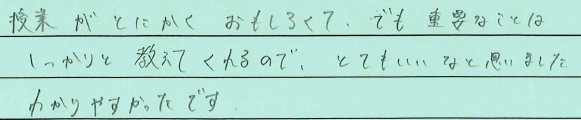 授業がとにかくおもしろくて、でも重要なことは
しっかりと教えてくれるので、とてもいいなと思いました
わかりやすかったです.